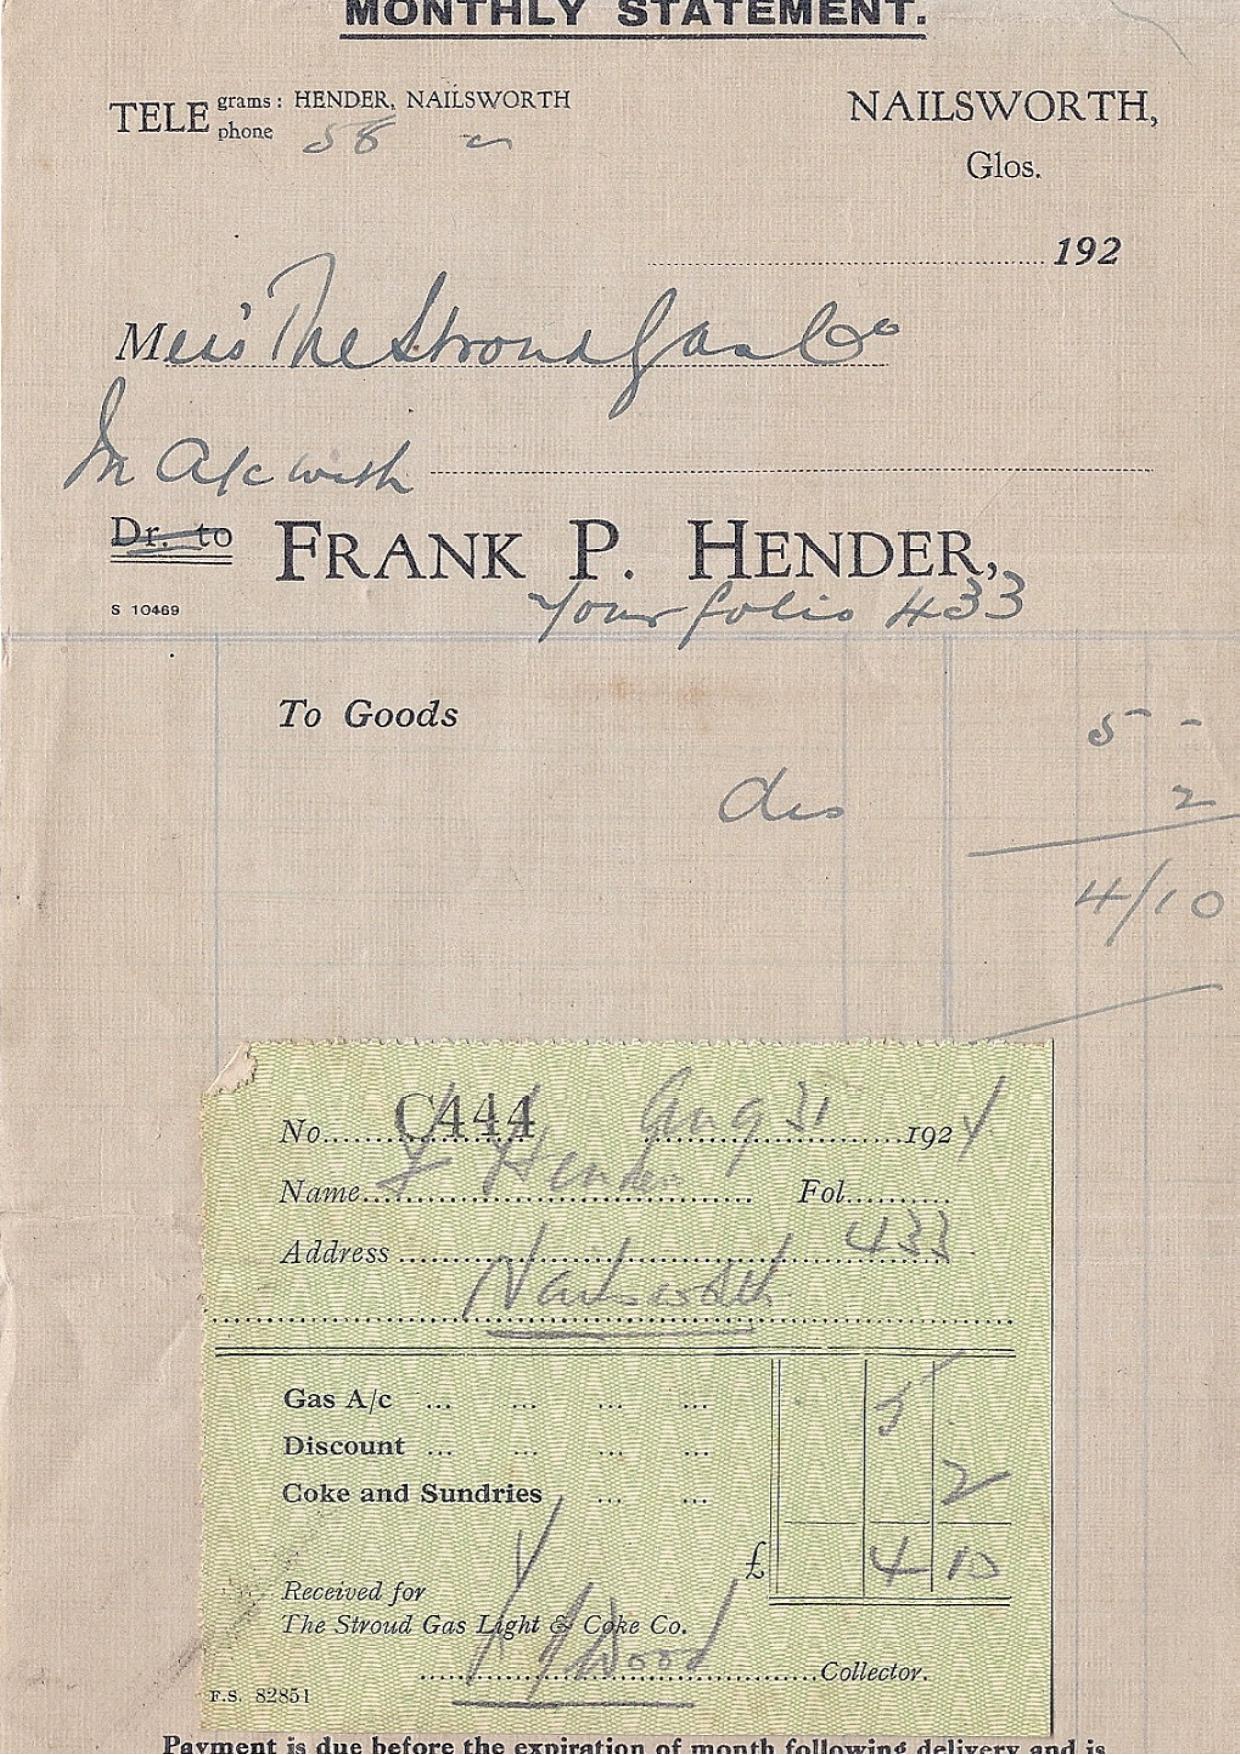 MONTHLY STATEMENT.
TELE grams: HENDER, NAILSWORTH
phone 58
NAILSWORTH,
Glos.
192
Mess's The Stroud Gas Co
In A/c with
Dr. to FRANK P. HENDER,
S 10469
Your folio 433
To Goods
5 -
dis 2
4/10
No. C444 Aug 31 1924
Name F Hender Fol.
Address 433
Nailsworth
Gas A/c ... ... ... ... 5 -
Discount ... ... ... ... 2
Coke and Sundries ... ...
£ 4 10
Received for
The Stroud Gas Light & Coke Co.
Wood Collector.
F.S. 82851
Payment is due before the expiration of month following delivery and is